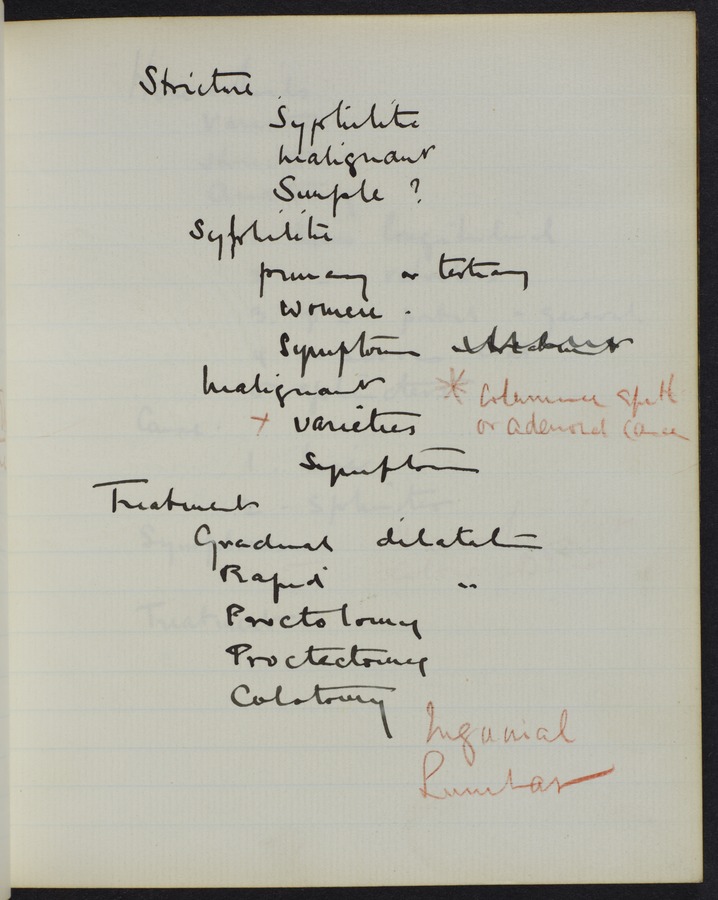 Stricture
Syphilitic
Malignant
Simple ?
Syphilitic
primary or tertiary
women .
Symptoms
Malignant * Columnar epith
+ varieties or adenoid cancer
Symptoms
Treatment
Gradual dilatation
Rapid "
Proctotomy
Proctectomy
Colotomy
Inguinal
Lumbar